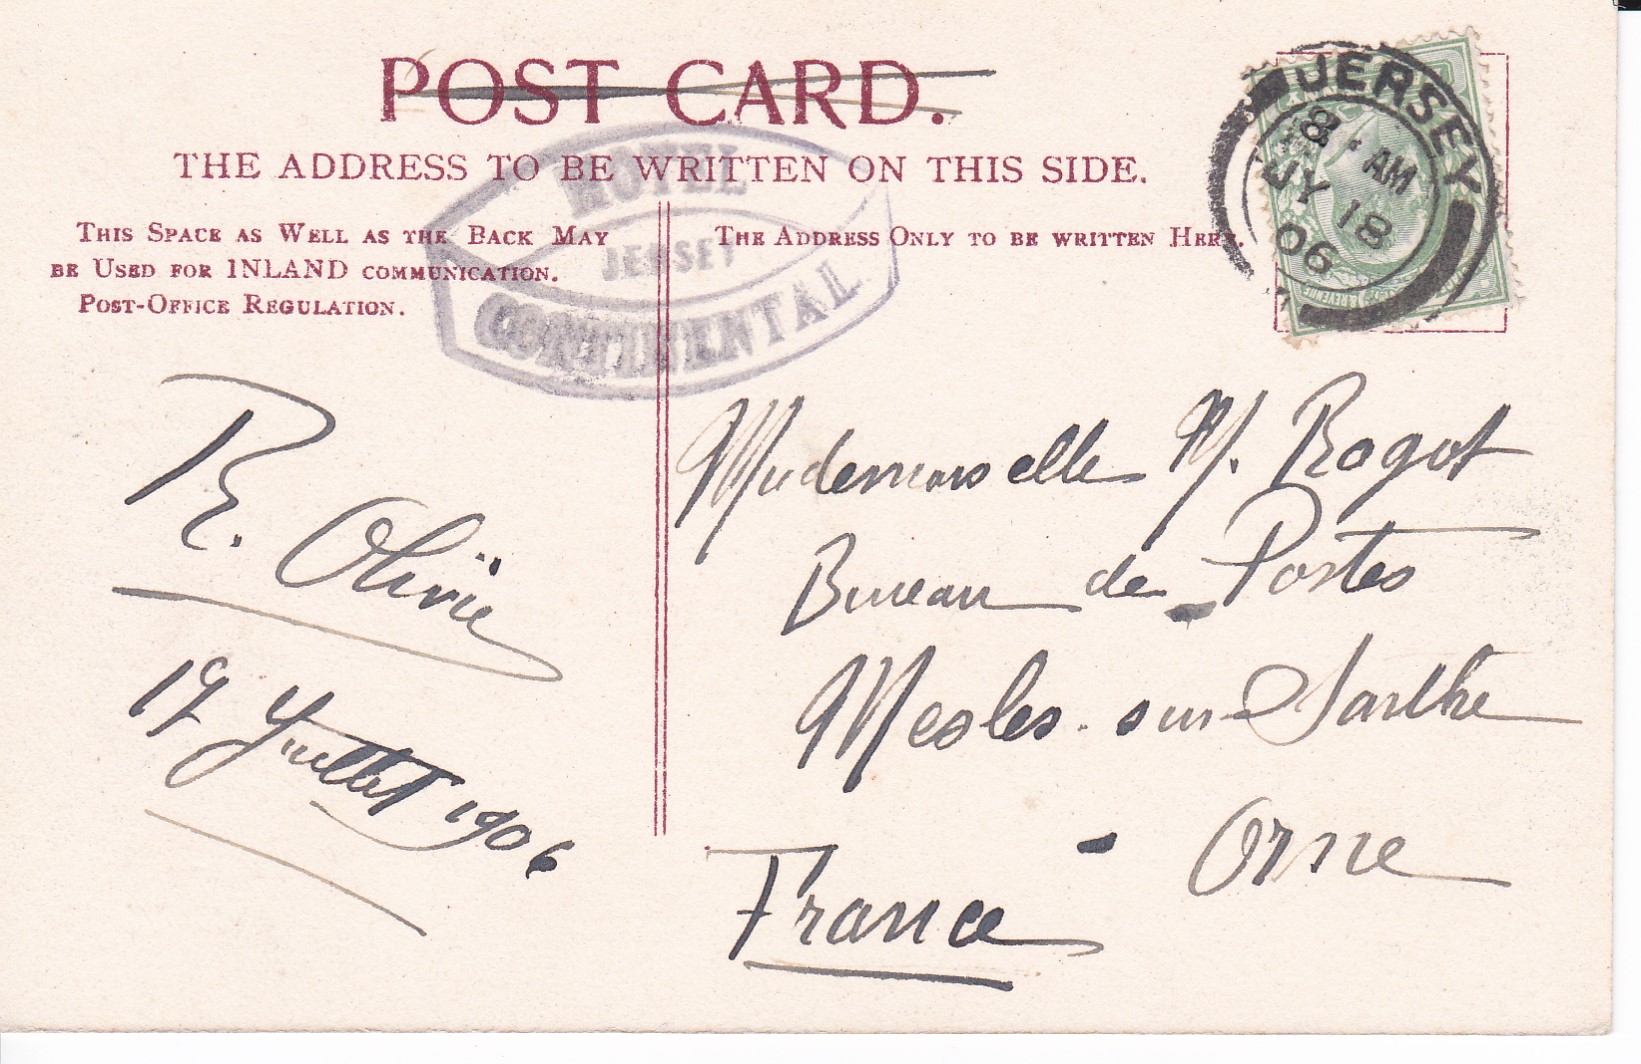 POST CARD.
THE ADDRESS TO BE WRITTEN ON THIS SIDE.
THIS SPACE AS WELL AS THE BACK MAY
BE USED FOR INLAND COMMUNICATION.
POST-OFFICE REGULATION.
THE ADDRESS ONLY TO BE WRITTEN HERE.
HOTEL
JERSEY
CONTINENTAL
JERSEY
8 AM
JY 18
06
& REVENUE
R. Olivie
17 Juillet 1906
Mademoiselle M. Ragot
Bureau de Postes
Mesles-sur-Sarthe
Orne
France